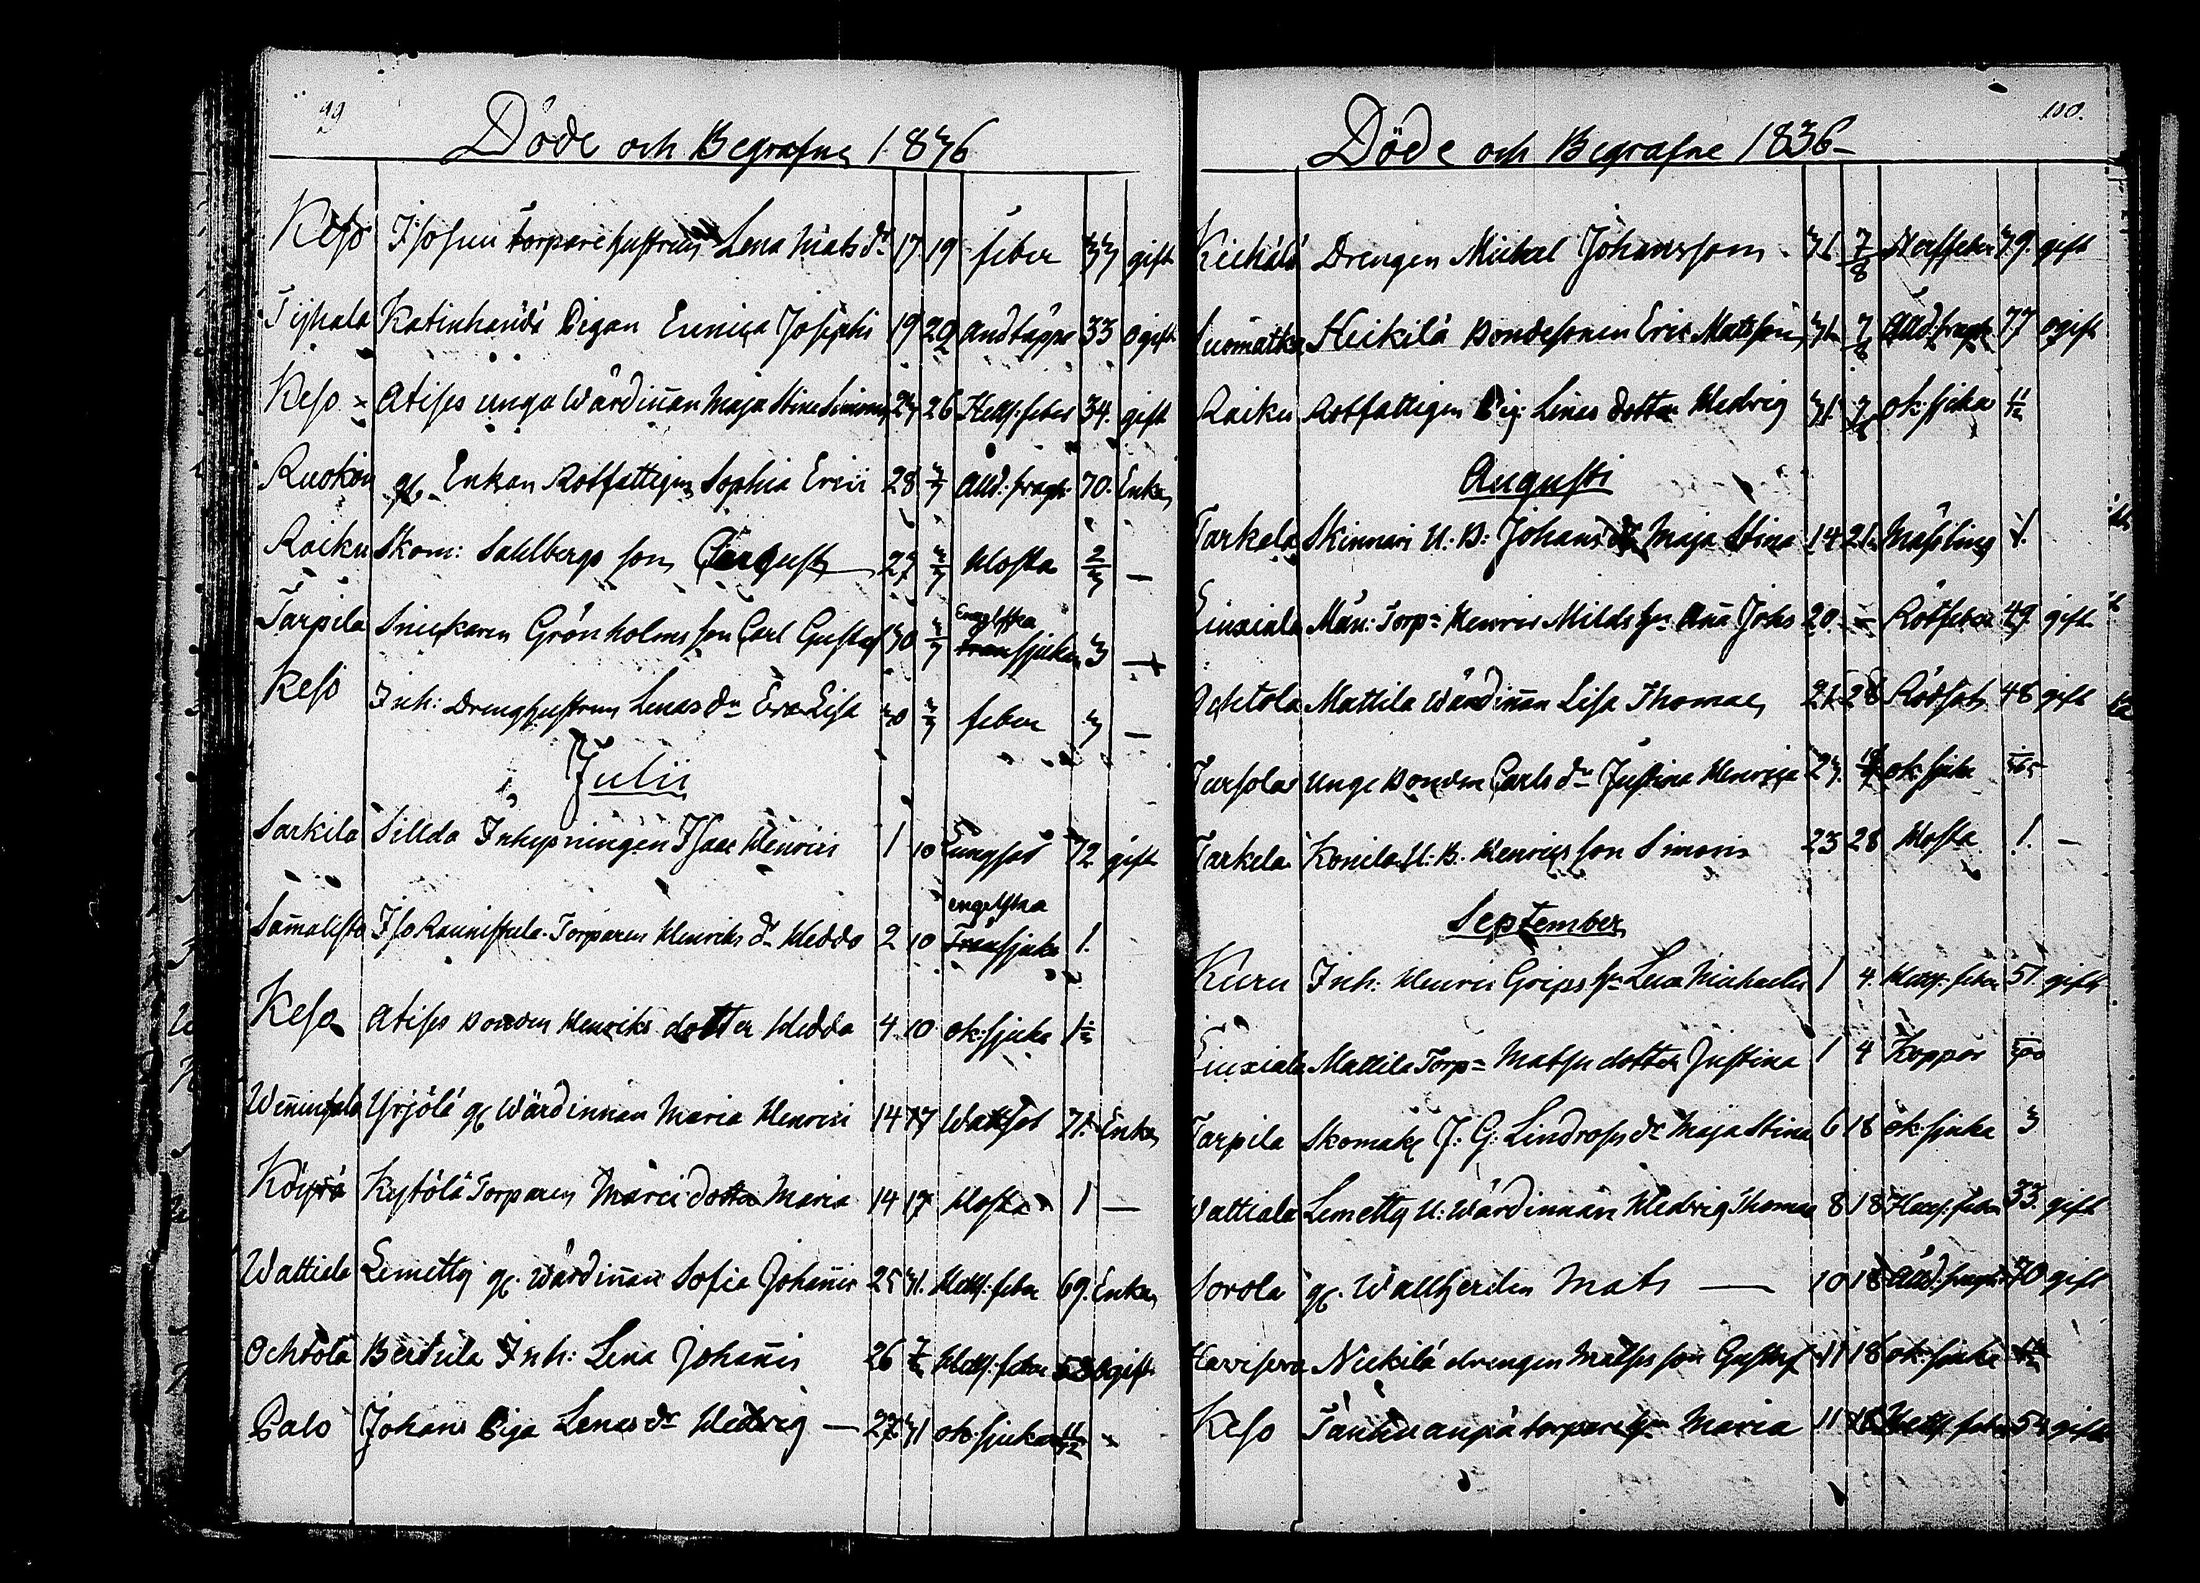 99
Döde och Begrafne 1836
Keso Isosuu torpare hustrun Lena Mats dr 17 19 feber 33 gift
Tijhala Katinhändä Pigan Eurica Josephi 19 29 andtäppa 33 ogift
Keso Atises unga Wärdinnan Maja Stina Simons 23 26 Hets: feber 34. gift
Ruokon gl. Enkan Rotfattigen Sophia Erici 28 3/7 Ålld: bragh 70. Enka
Raiku Skom: Sahlbergs son August 27 3/7 Hosta 2/3 —
Tarpila Snickaren Grönholms son Carl Gustaf 30 3/7 Engelska sjukan 3 —
Keso Inh: Drenghustrun Lenas dr Eva Lisa 30 3/7 feber 3 —
Julii
Sarkila Sillda Inhysningen Isaac Henrici 1 10 Lungsot 72 gift
Samalisto Iso Raunistula Torparen Henriks dr Hedda 2 10 engelska sjuka 1.
Keso Atises Bonden Henriks dotter Hedda 4 10 ok: sjuka 1 1/2
Wäninsala Yrjölä gl Wärdinnan Maria Henrici 14 17 Wattsot 71. Enka
Köyrä Kytölä Torparen Marci dotter Maria 14 17 Hosta 1 —
Wattiala Lemetty gl. Wärdinnan Sofia Johannis 25 31. Hets: feber 69. Enka
Ochtola Bertula Inh: Lena Johannis 26 7/8 Hets: feber ogift
Palo Johans Piga Lenas dr Hedvig — 27 31 ok: sjuka —
100.
Döde och Begrafne 1836 —
Kiickälä Drengen Michel Johansson 31. 7/8 feber 39. gift
Suomatka Heikilä Bondesonen Eric Matsson 31. 7/8 Ålld: bragh 77 ogift
Raiku Rotfattigen Pig: Lenas dotter Hedvig 31. 7/8 ok: sjuka
Augusti
Tarkela Skinnari U: B: Johans dr Maja Stina 14 21. Mässling 1
Män: Torp= Henric Milds hr Ana Johs 20. — Rötfeber 49. gift
Ochtola Mattila Wärdinnan Lisa Thomae 21. 28 Rödsot 48 gift
Tursola unge Bonden Carls dr Justina Henrica 23. ok: sjuka
Tarkela Konila U: B. Henrics son Simon 23 28 Hosta 1. —
September
Kuru Inh: Henric Grips hr Lena Michaelis 1 4. Hets: feber 51. gift
Mattila Torp= Matsu dotter Justina 1 4 Koppor
Tarpila Skomak J: G: Lindroos dr Maja Stina 6 18 ok: sjuka 3
Wattiala Lemetty U: Wärdinnan Hedvig Thomae 8 18 Hets: feber 33. gift
Sorola gl. Wallherden Mats — 10 18 Ålld: bragh 70 gift
Havisova Nickilä drengen Matses son Gustaf 11 18 ok: sjuka
Keso torpare hr Maria 11 18 Hets: feber 54 gift